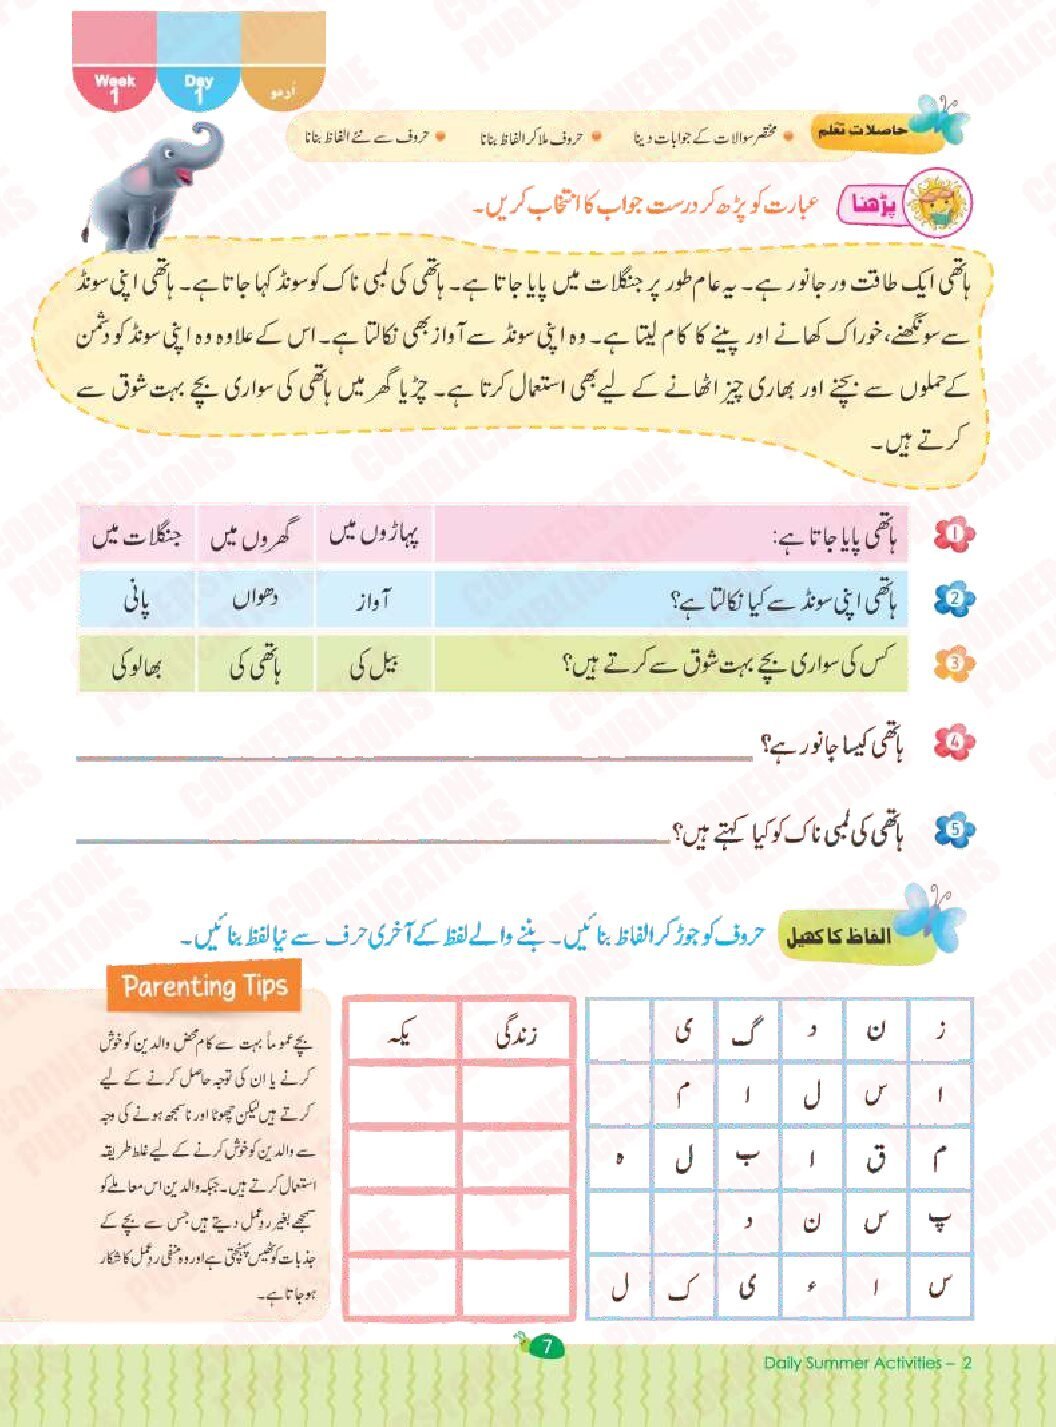 Week 1
Day 1
اُردو
حاصلات تعلم
• مختصر سوالات کے جوابات دینا • حروف ملا کر الفاظ بنانا • حروف سے نئے الفاظ بنانا
پڑھنا
عبارت کو پڑھ کر درست جواب کا انتخاب کریں۔
ہاتھی ایک طاقت ور جانور ہے۔ یہ عام طور پر جنگلات میں پایا جاتا ہے۔ ہاتھی کی لمبی ناک کو سونڈ کہا جاتا ہے۔ ہاتھی اپنی سونڈ
سے سونگھنے، خوراک کھانے اور پینے کا کام لیتا ہے۔ وہ اپنی سونڈ سے آواز بھی نکالتا ہے۔ اس کے علاوہ وہ اپنی سونڈ کو دشمن
کے حملوں سے بچنے اور بھاری چیز اٹھانے کے لیے بھی استعمال کرتا ہے۔ چڑیا گھر میں ہاتھی کی سواری بچے بہت شوق سے
کرتے ہیں۔
1 ہاتھی پایا جاتا ہے: پہاڑوں میں گھروں میں جنگلات میں
2 ہاتھی اپنی سونڈ سے کیا نکالتا ہے؟ آواز دھواں پانی
3 کس کی سواری بچے بہت شوق سے کرتے ہیں؟ بیل کی ہاتھی کی بھالو کی
4 ہاتھی کیسا جانور ہے؟
5 ہاتھی کی لمبی ناک کو کیا کہتے ہیں؟
الفاظ کا کھیل
حروف کو جوڑ کر الفاظ بنائیں۔ بننے والے لفظ کے آخری حرف سے نیا لفظ بنائیں۔
ز ن د گ ی
ا س ل ا م
م ق ا ب ل ہ
پ س ن د
س ا ء ی ک ل
زندگی یکہ
Parenting Tips
بچے عموماً بہت سے کام محض والدین کو خوش
کرنے یا ان کی توجہ حاصل کرنے کے لیے
کرتے ہیں لیکن چھوٹا اور ناسمجھ ہونے کی وجہ
سے والدین کو خوش کرنے کے لیے غلط طریقہ
استعمال کرتے ہیں۔ جبکہ والدین اس معاملے کو
سمجھے بغیر ردِعمل دیتے ہیں جس سے بچے کے
جذبات کو ٹھیس پہنچتی ہے اور وہ منفی ردِعمل کا شکار
ہو جاتا ہے۔
7
Daily Summer Activities – 2
CORNERSTONE PUBLICATIONS